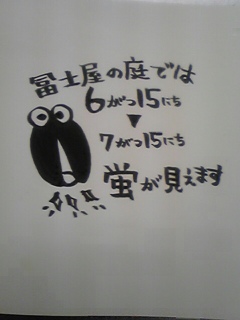 冨士屋の庭では
6がつ15にち
▼
7がつ15にち
蛍が見えます